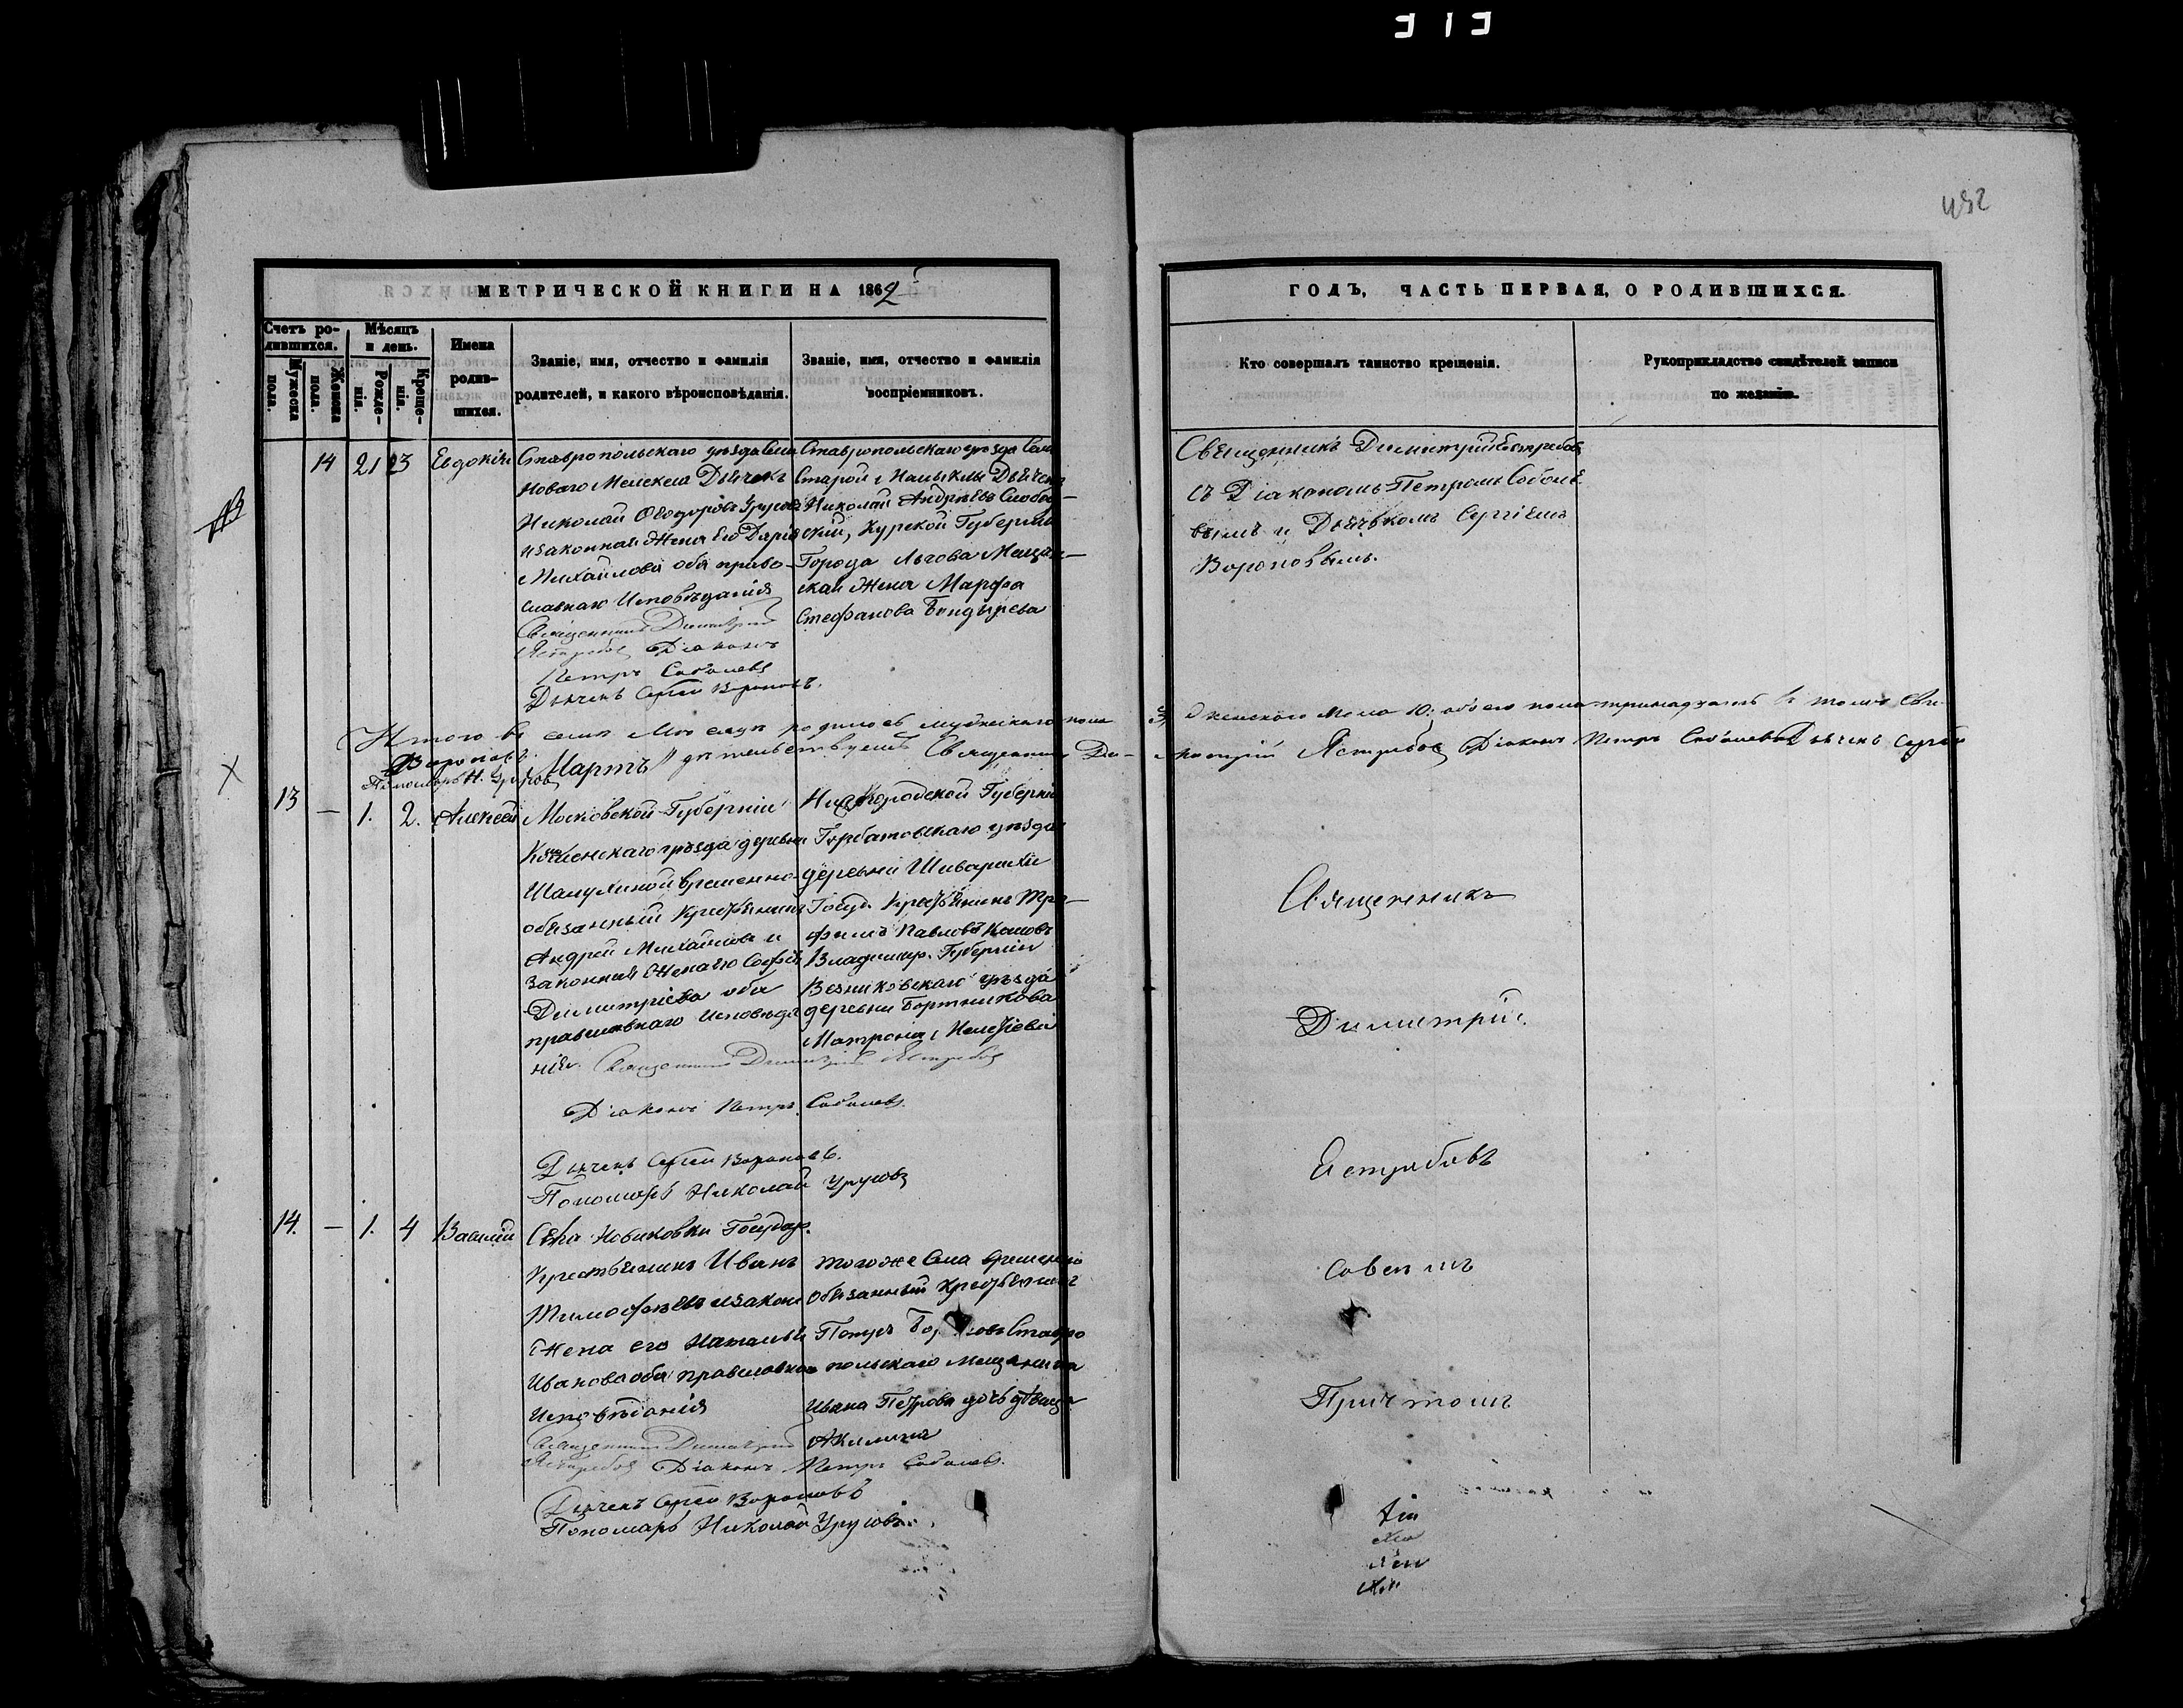 313
452
МЕТРИЧЕСКОЙ КНИГИ НА 1862
ГОДЪ, ЧАСТЬ ПЕРВАЯ, О РОДИВШИХСЯ.
Счетъ ро-
дившихся.
Мужеска
пола.
Женска
пола.
Мѣсяцъ
и день.
Рожде-
нія.
Креще-
нія.
Имена
родив-
шихся.
Званіе, имя, отчество и фамилія
родителей, и какого вѣроисповѣданія.
Званіе, имя, отчество и фамилія
воспріемниковъ.
Кто совершалъ таинство крещенія.
Рукоприкладство свидѣтелей записи
по желанію.
14 21 23 Евдокія
Ставропольскаго уѣзда Села
Новаго Мелекеса Дьячекъ
Николай Ѳеодоровъ
и законная Жена Его Дарія
Михайлова оба право-
славнаго Исповѣданія
Священникъ Димитрій
Ястребовъ Діаконъ
Петръ Соболевъ
Дьячекъ Сергей Вороновъ.
Ставропольскаго уѣзда Села
Старой Дьячекъ
Николай Андреевъ Слобод-
ский, Курской Губерніи
Города Льгова Мещан-
ская Жена Марфа
Стефанова Бондырева
Священникъ Димитрій Ястребовъ
съ Діакономъ Петромъ Соболе-
вымъ и Дьячкомъ Сергіемъ
Вороновымъ.
Итого въ семъ родилось мужескаго пола
3, женского пола 10; обоего пола тринадцать въ томъ Сви-
дѣтельствуемъ Священникъ Ди-
митрій Ястребовъ Діаконъ Петръ Соболевъ Дьячекъ Сергей
Вороновъ.
Пономарь Н.
Мартъ
13 — 1. 2. Алексей
Московской Губерніи
уѣзда деревни
временно-
обязанный Крестьянинъ
Андрей Михайловъ и
законная Жена его Софія
Димитріева оба
православнаго Исповѣда
нія. Священникъ Димитрій Ястребовъ
Діаконъ Петръ Соболевъ.
Дьячекъ Сергей Вороновъ.
Пономарь Николай
Нижегородской Губерніи
Горбатовскаго уѣзда
деревни
Госуд. Крестьянинъ Тро-
фимъ Павловъ
Владимир. Губерніи
Везниковскаго уѣзда
деревни Бортникова
Матрона
14. — 1. 4 Василій
Села Новиковки Государ.
Крестьянинъ Иванъ
Тимофеевъ и закон
Жена его Наталья
Иванова оба православнаго
Исповѣданія
Священникъ Димитрій
Ястребовъ Діаконъ Петръ Соболевъ.
Дьячекъ Сергей Вороновъ
Пономарь Николай
тогоже Села временно
обязанный Крестьянинъ
Ставро
польскаго мещанина
Ивана Петрова дочь дѣвица
Акилина
Священникъ
Димитрій.
Ястребовъ
Совсемъ
Причтомъ